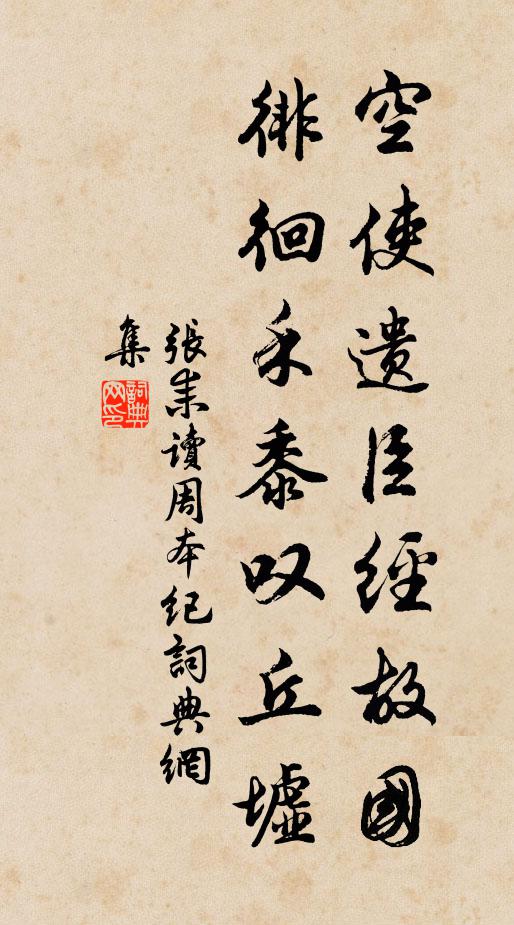 空使遗臣經故國
徘徊禾黍叹丘墟
張耒讀周本紀詞典網
集
詞典
网印